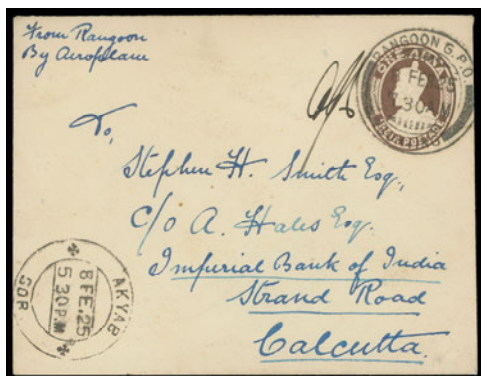 From Rangoon
By Aeroplane
RANGOON G.P.O.
FE
7.30A
To,
Stephen H. Smith Esq.,
C/o A. Hales Esq.
Imperial Bank of India
Strand Road
Calcutta.
AKYAB
8 FE.25
5 30 P.M
SOR